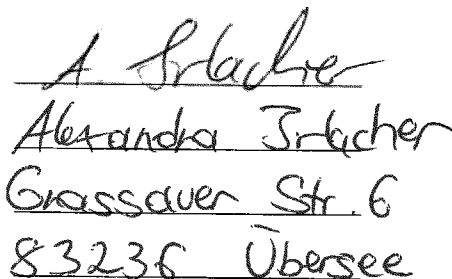 A Irlacher
Alexandra Irlacher
Grassauer Str. 6
83236 Übersee